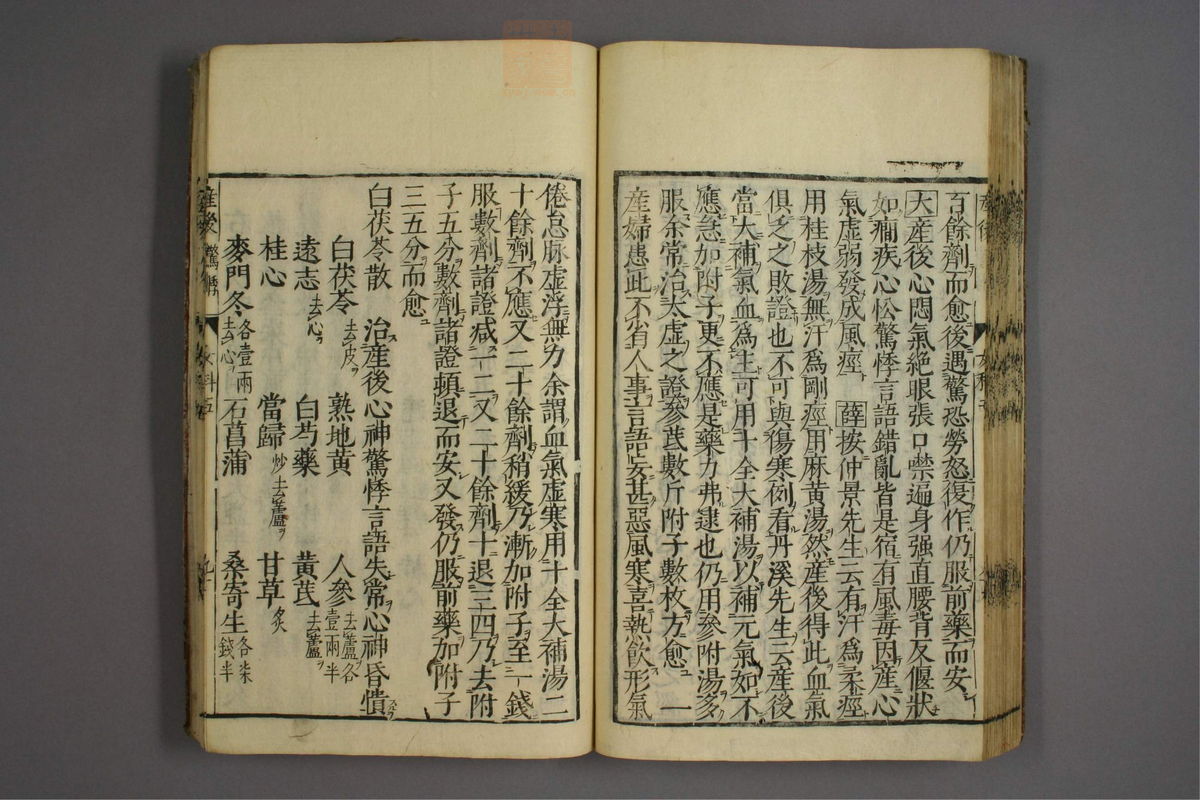 百餘劑而愈後遇驚恐勞怒復作仍服前藥而安
大産後心悶氣絶眼張口噤遍身强直腰背反偃狀
如癇疾心忪驚悸言語錯亂皆是宿有風毒因産心
氣虛弱發成風痙 薛按仲景先生云有汗爲柔痙
用桂枝湯無汗爲剛痙用麻黄湯然産後得此血氣
俱乏之敗證也不可與傷寒例看丹溪先生云産後
當大補氣血爲主可用十全大補湯以補元氣如不
應急加附子更不應是藥力弗逮也仍用參附湯多
服余常治太虛之證參芪數斤附子數枚方愈 一
産婦患此不省人事言語妄甚惡風寒喜熱飲形氣
倦怠脉虛浮無力余謂血氣虛寒用十全大補湯二
十餘劑不應又二十餘劑稍緩乃漸加附子至一錢
服數劑諸證减一二又二十餘劑十退三四乃去附
子五分數劑諸證頓退而安又發仍服前藥加附子
三五分而愈
白茯苓散 治産後心神驚悸言語失常心神昏憒
白茯苓去皮 熟地黄 人參去蘆各壹兩半
遠志去心 白芍藥 黄芪去蘆
桂心 當歸炒去蘆 甘草炙
麥門冬各壹兩去心 石菖蒲 桑寄生各柒錢半
産後 驚悸 女科五